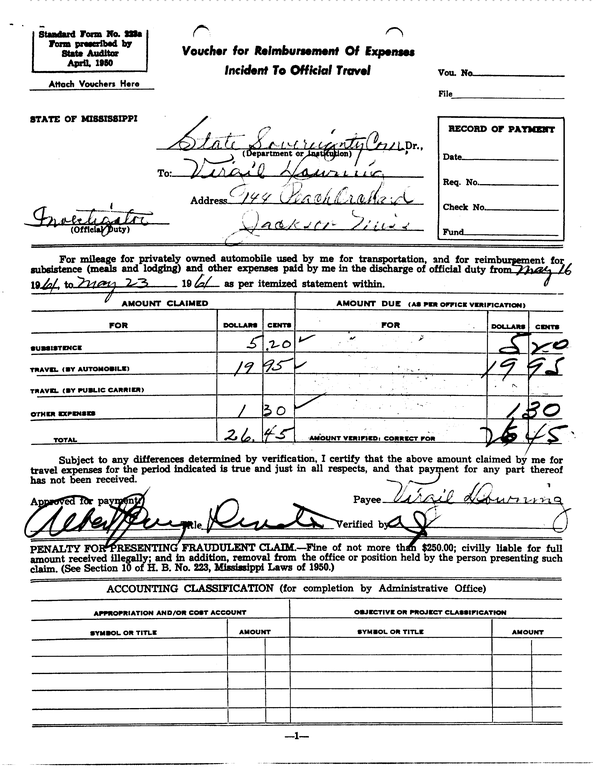 Standard Form No. 223a
Form prescribed by
State Auditor
April, 1950
Attach Vouchers Here
Voucher for Reimbursement Of Expenses
Incident To Official Travel
Vou. No.
File
STATE OF MISSISSIPPI
State Sovereignty Com. Dr.,
(Department or Institution)
To: Virgil Downing
Address 944 Peach Orchard
Jackson Miss
Investigator
(Official Duty)
RECORD OF PAYMENT
Date
Req. No.
Check No.
Fund
For mileage for privately owned automobile used by me for transportation, and for reimbursement for
subsistence (meals and lodging) and other expenses paid by me in the discharge of official duty from May 16
1961, to May 23 1961 as per itemized statement within.
AMOUNT CLAIMED AMOUNT DUE (AS PER OFFICE VERIFICATION)
FOR DOLLARS CENTS FOR DOLLARS CENTS
SUBSISTENCE 5 20 5 20
TRAVEL (BY AUTOMOBILE) 19 95 19 95
TRAVEL (BY PUBLIC CARRIER)
OTHER EXPENSES 1 30 1 30
TOTAL 26 45 AMOUNT VERIFIED: CORRECT FOR 26 45
Subject to any differences determined by verification, I certify that the above amount claimed by me for
travel expenses for the period indicated is true and just in all respects, and that payment for any part thereof
has not been received.
Approved for payment: Payee Virgil Downing
Albert Jones Title Director Verified by
PENALTY FOR PRESENTING FRAUDULENT CLAIM.—Fine of not more than $250.00; civilly liable for full
amount received illegally; and in addition, removal from the office or position held by the person presenting such
claim. (See Section 10 of H. B. No. 223, Mississippi Laws of 1950.)
ACCOUNTING CLASSIFICATION (for completion by Administrative Office)
APPROPRIATION AND/OR COST ACCOUNT OBJECTIVE OR PROJECT CLASSIFICATION
SYMBOL OR TITLE AMOUNT SYMBOL OR TITLE AMOUNT
—1—